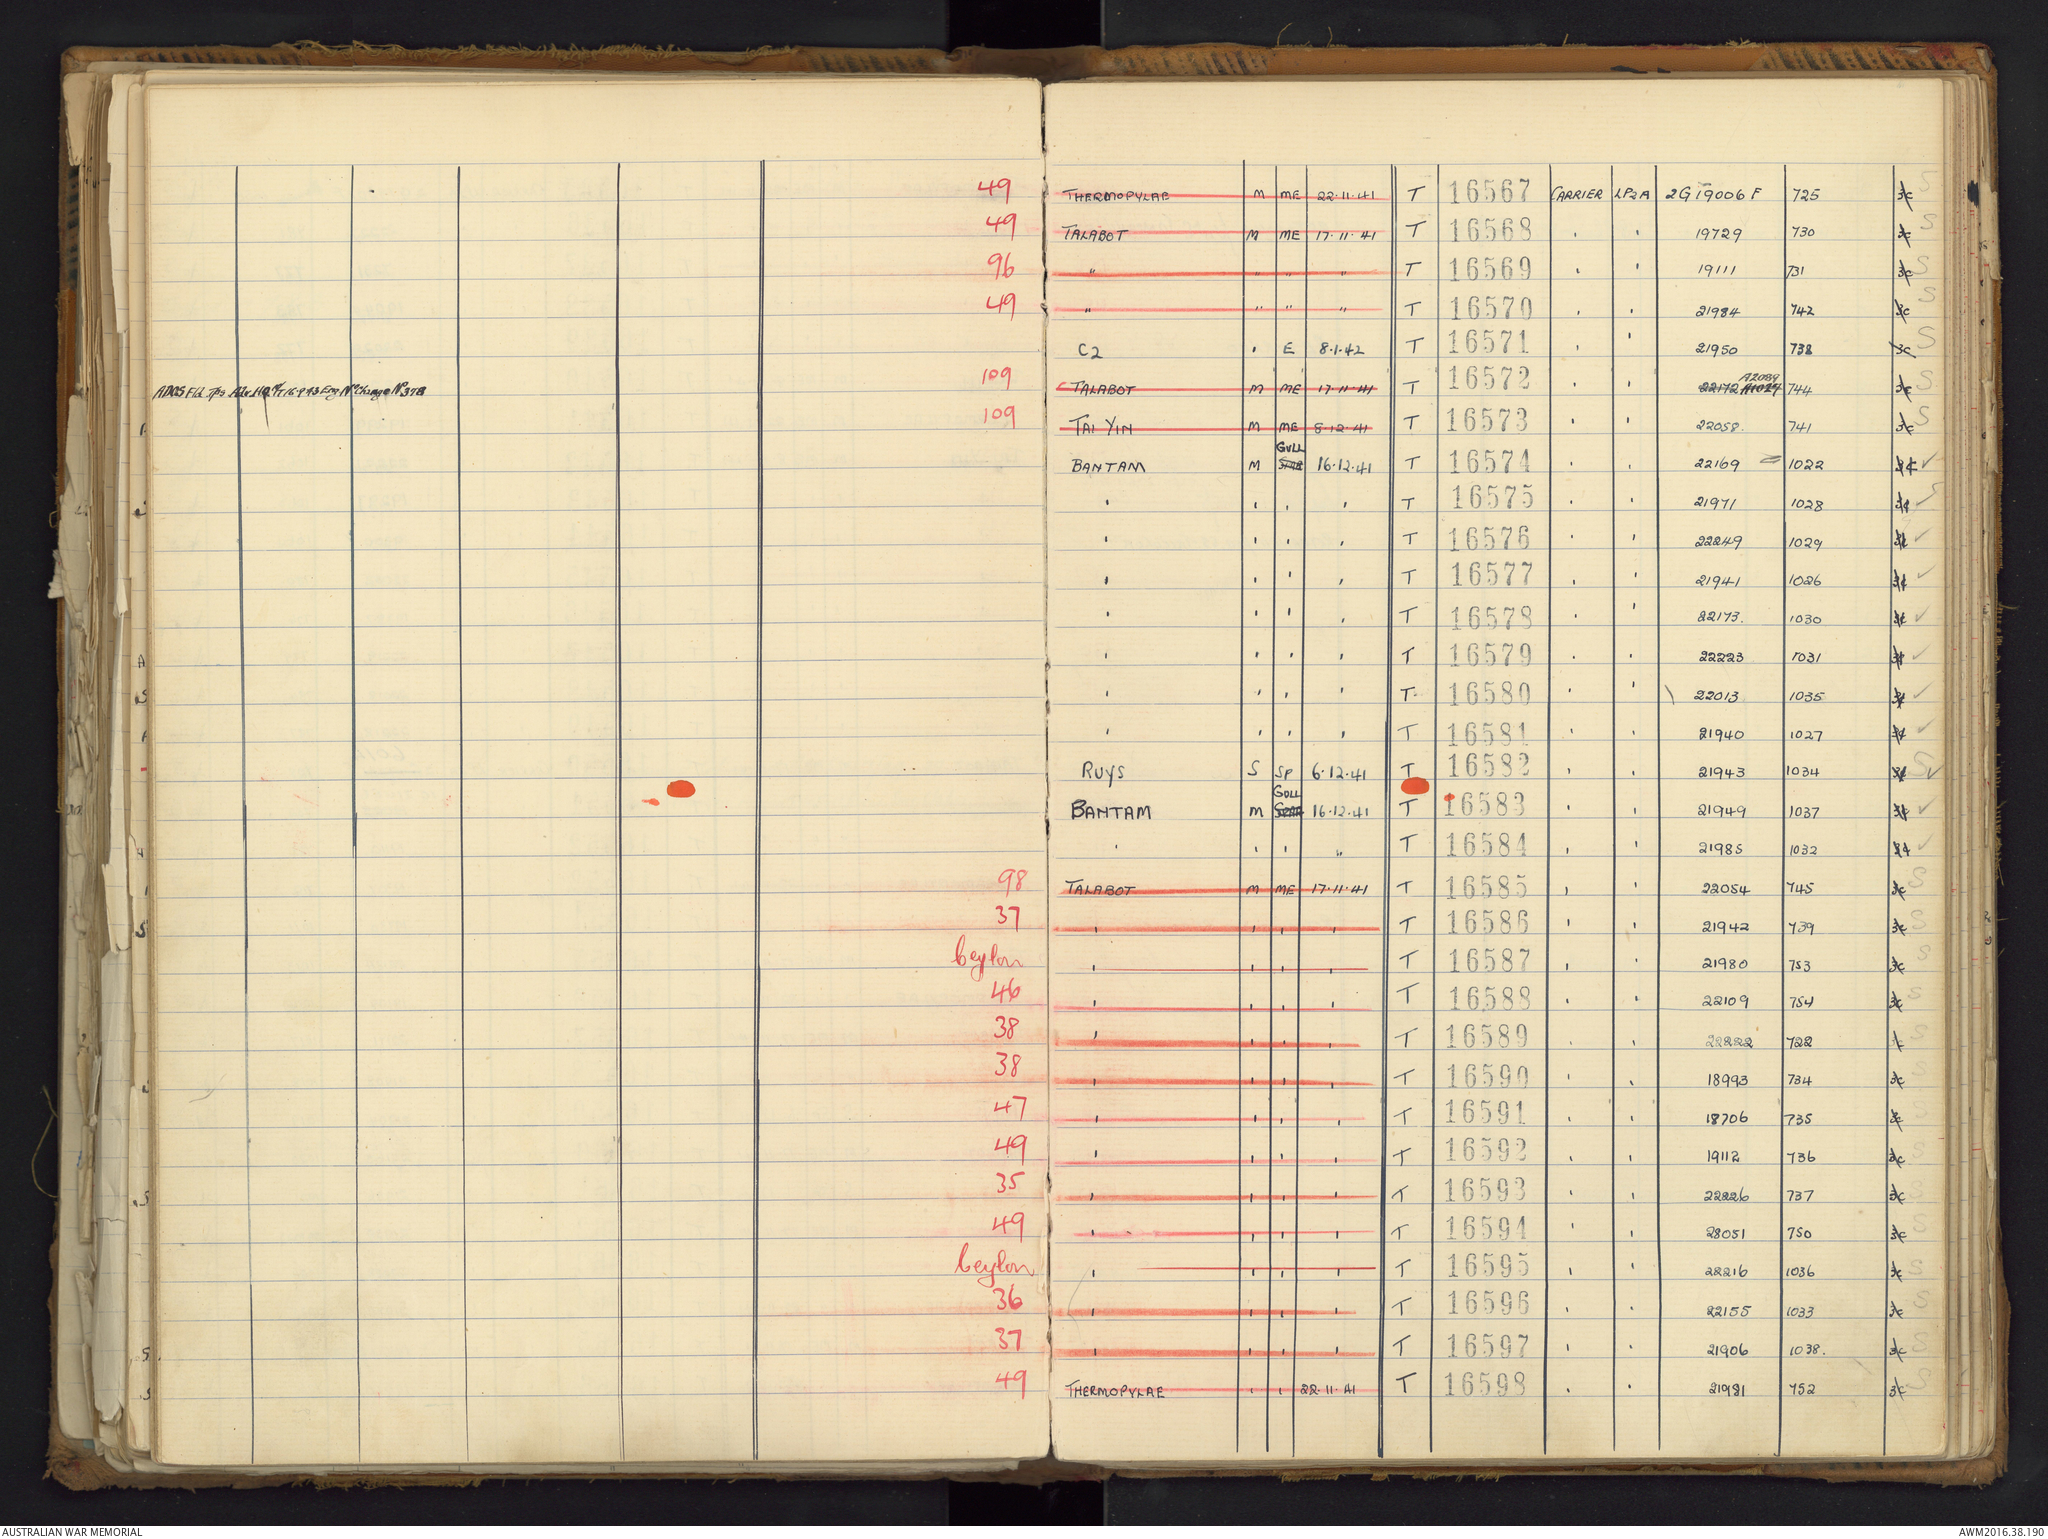 49 THERMOPYLAE M ME 22.11.41 T 16567 CARRIER LP2A 2G 19006 F 725 3c S
49 TALABOT M ME 17.11.41 T 16568 ' ' 19729 730 3c S
96 " " " " T 16569 ' ' 19111 731 3c S
49 " " " " T 16570 ' ' 21984 742 3c S
C2 ' E 8.1.42 T 16571 ' ' 21950 738 3c S
ADOS Fld Tps Adv HQ 16.9.43 Eng No Change No 378 109 TALABOT M ME 17.11.41 T 16572 ' ' 22172 A1027 A2089 744 3c S
109 TAI YIN M ME 8.12.41 T 16573 ' ' 22058. 741 3c S
BANTAM M GULL 16.12.41 T 16574 ' ' 22169 1022 ✓
' ' ' ' T 16575 ' ' 21971 1028 ✓
' ' ' ' T 16576 ' ' 22249 1029 ✓
' ' ' ' T 16577 ' ' 21941 1026 ✓
' ' ' ' T 16578 ' ' 22173. 1030 ✓
' ' ' ' T 16579 ' ' 22223 1031 ✓
' ' ' ' T 16580 ' ' 22013 1035 ✓
' ' ' ' T 16581 ' ' 21940 1027 ✓
RUYS S SP 6.12.41 T 16582 ' ' 21943 1034 S ✓
BANTAM M GULL 16.12.41 T 16583 ' ' 21949 1037 ✓
' ' ' " T 16584 ' ' 21985 1032 ✓
98 TALABOT M ME 17.11.41 T 16585 ' ' 22054 745 3c S
37 ' ' ' ' T 16586 ' ' 21942 739 3c S
Ceylon ' ' ' ' T 16587 ' ' 21980 753 3c S
46 ' ' ' ' T 16588 ' ' 22109 754 3c S
38 ' ' ' ' T 16589 ' ' 22222 722 S
38 ' ' ' ' T 16590 ' ' 18993 734 3c S
47 ' ' ' ' T 16591 ' ' 18706 735 S
49 ' ' ' ' T 16592 ' ' 19112 736 3c S
35 ' ' ' ' T 16593 ' ' 22226 737 3c S
49 ' ' ' ' T 16594 ' ' 28051 750 3c S
Ceylon ' ' ' ' T 16595 ' ' 22216 1036 3c S
36 ' ' ' ' T 16596 ' ' 22155 1033 3c S
37 ' ' ' ' T 16597 ' ' 21906 1038. 3c S
49 THERMOPYLAE ' ' 22.11.41 T 16598 ' ' 21981 752 3c S
AUSTRALIAN WAR MEMORIAL AWM2016.38.190